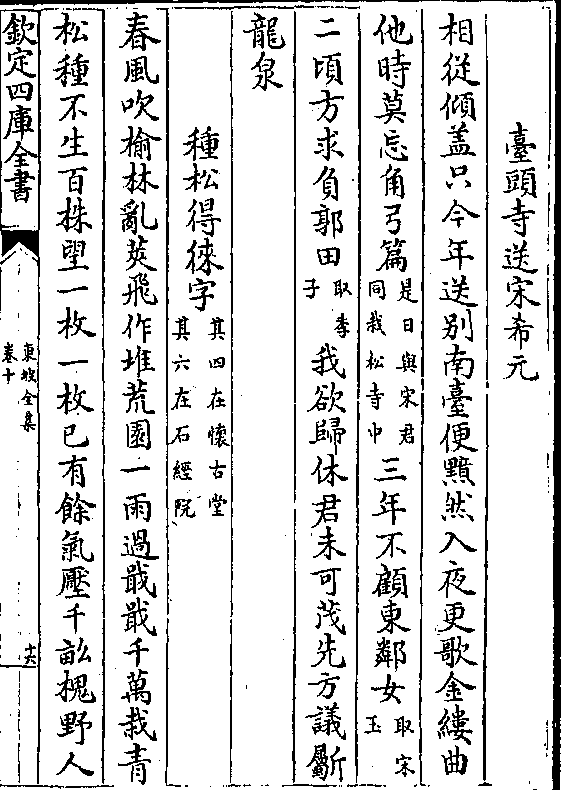 臺頭寺送宋希元
相從傾盖只今年送别南臺便黯然入夜更歌金縷曲
他時莫忘角弓篇是日與宋君同栽松寺中三年不顧東鄰女取宋玉
二頃方求負郭田取季子我欲歸休君未可茂先方議斸
龍泉
種松得徠字其四在懷古堂其六在石經院
春風吹榆林亂莢飛作堆荒園一雨過戢戢千萬栽青
松種不生百株望一枚一枚已有餘氣壓千畝槐野人
欽定四庫全書
東坡全集
卷十
十六